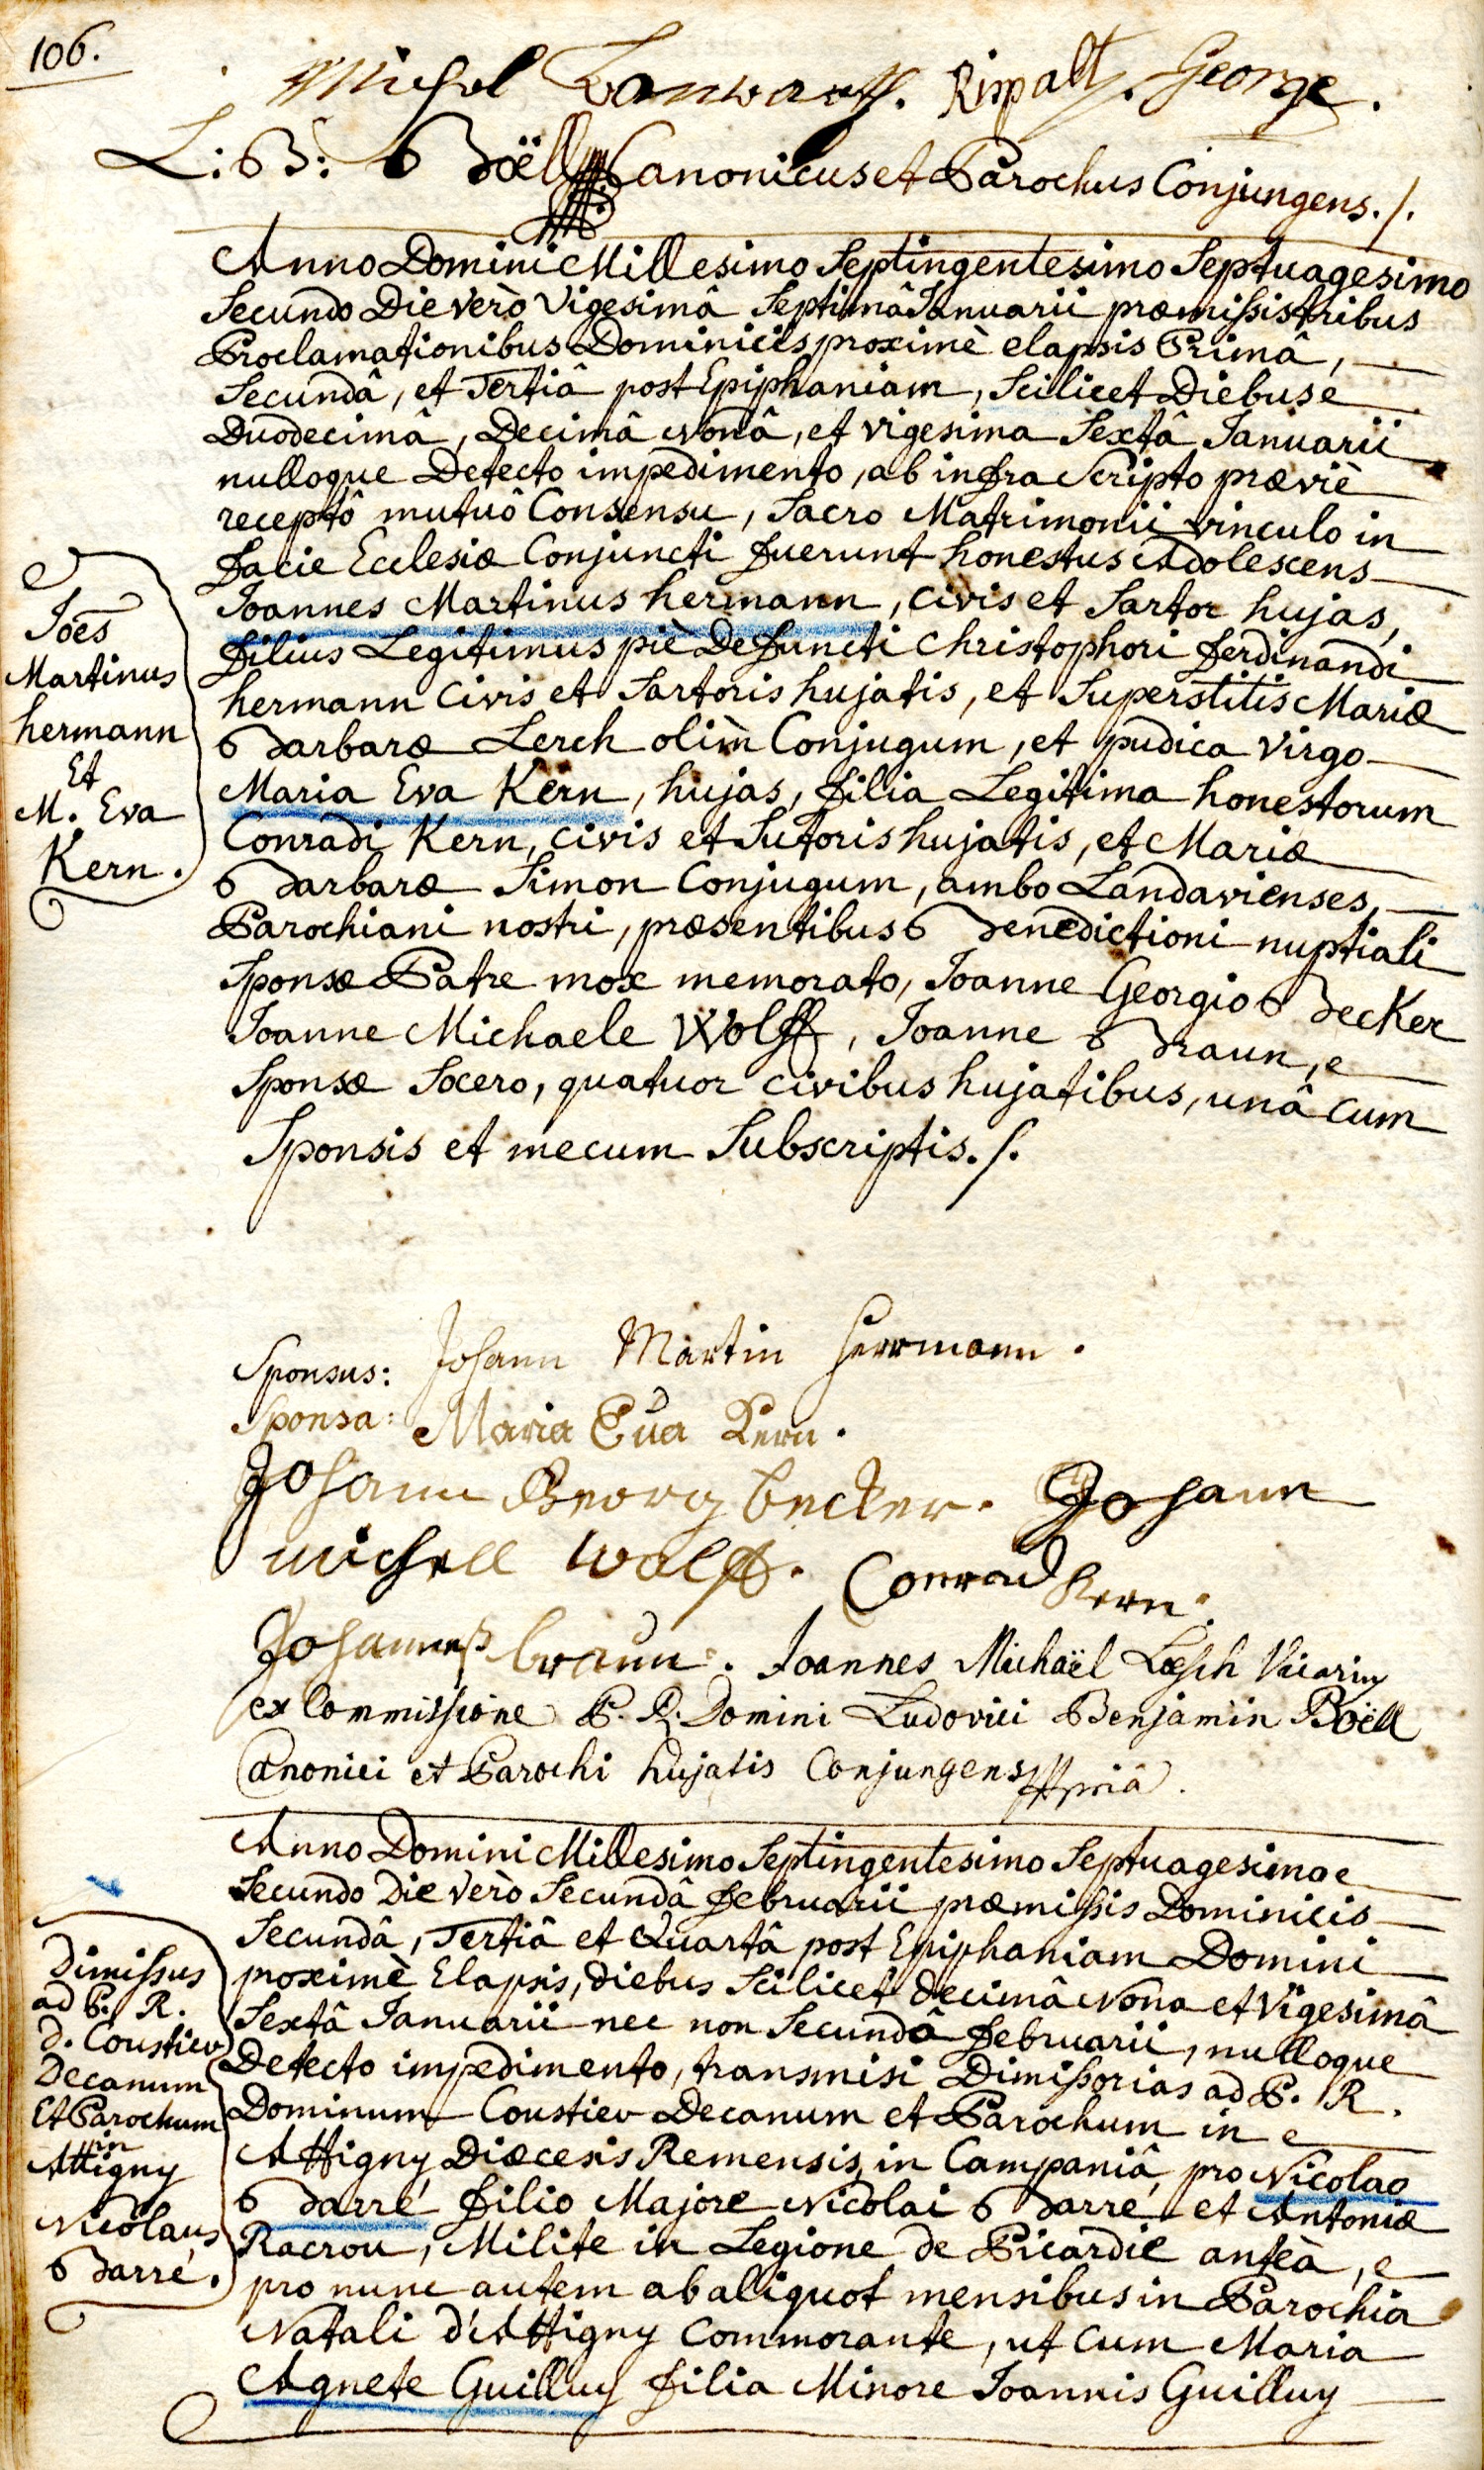 106.
Michel Rippalt. George.
L: B: Boëll Canonicus et Parochus Conjungens./.
Anno Domini Millesimo Septingentesimo Septuagesimo
Secundo Die verò Vigesimâ Septimâ Januarii præmissis tribus
Proclamationibus Dominicis proximè elapsis Primâ,
Secundâ, et Tertiâ post Epiphaniam, Scilicet Diebus
Duodecimâ, Decimâ Nonâ, et vigesima Sextâ Januarii
nulloque Detecto impedimento, ab infra Scripto præviè
receptô mutuô Consensu, Sacro Matrimonii vinculo in
facie Ecclesiæ Conjuncti fuerunt honestus Adolescens
Joannes Martinus hermann, civis et Sartor hujas,
filius Legitimus piè Defuncti Christophori ferdinandi
hermann civis et Sartoris hujatis, et Superstitis Mariæ
Barbaræ Lerch olim Conjugum, et pudica virgo
Maria Eva Kern, hujas, filia Legitima honestorum
Conradi Kern, civis et Sutoris hujatis, et Mariæ
Barbaræ Simon Conjugum, ambo Landavienses,
Parochiani nostri, præsentibus Benedictioni nuptiali
Sponsæ Patre mox memorato, Joanne Georgio Becker
Joanne Michaele Wolff, Joanne Braun,
Sponsæ Socero, quatuor civibus hujatibus, unâ cum
Sponsis et mecum Subscriptis./.
Joës
Martinus
hermann
Et
M. Eva
Kern.
Sponsus: Johann Martin Herrmann.
Sponsa: Maria Eva Kern.
Johann Georg becker. Johann
michell wolff. Conrad Kern.
Johanneß braun. Joannes Michaël Lœsch Vicarius
ex Commissione P. R. Domini Ludovici Benjamin Boëll
Canonici et Parochi hujatis Conjungens mpriâ.
Anno Domini Millesimo Septingentesimo Septuagesimo
Secundo Die verò Secundâ februarii præmissis Dominicis
Secundâ, Tertiâ et Quartâ post Epiphaniam Domini
proximè Elapsis, diebus Scilicet decimâ Nona et Vigesimâ
Sextâ Januarii nec non Secundâ februarii, nulloque
Detecto impedimento, transmisi Dimissorias ad P. R.
Dominum Coustiev Decanum et Parochum in
Attigny Diœcesis Remensis in Campaniâ, pro Nicolao
Barré filio Majore Nicolai Barré et Antoniæ
Racrou, Milite in Legione de Picardie anteà,
pro nunc autem ab aliquot mensibus in Parochia
Natali d'Attigny Commorante, ut cum Maria
Agnete Guilluy filia Minore Joannis Guilluy
Dimissus
ad P. R.
d. Coustiev
Decanum
Et Parochum
in
Attigny
Nicolaus
Barré.